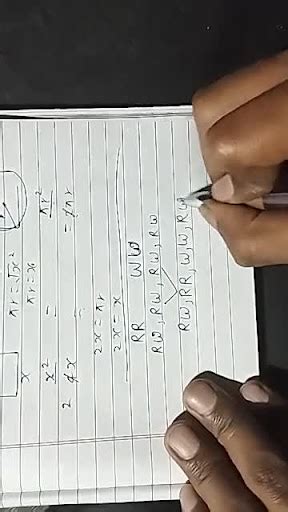 πr = √x²
x πr = x
x² = πr²
2x = πr
2x = x
RR WW
RW, RW, RW, RW
RW, RR, W, W, RW